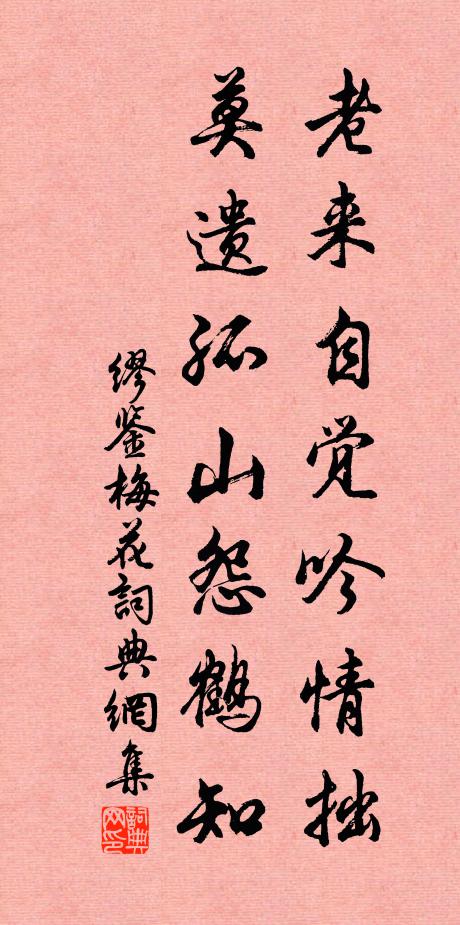 老来自觉吟情拙
莫遗孤山怨鹤知
缪鉴梅花詞典網集
詞典网印